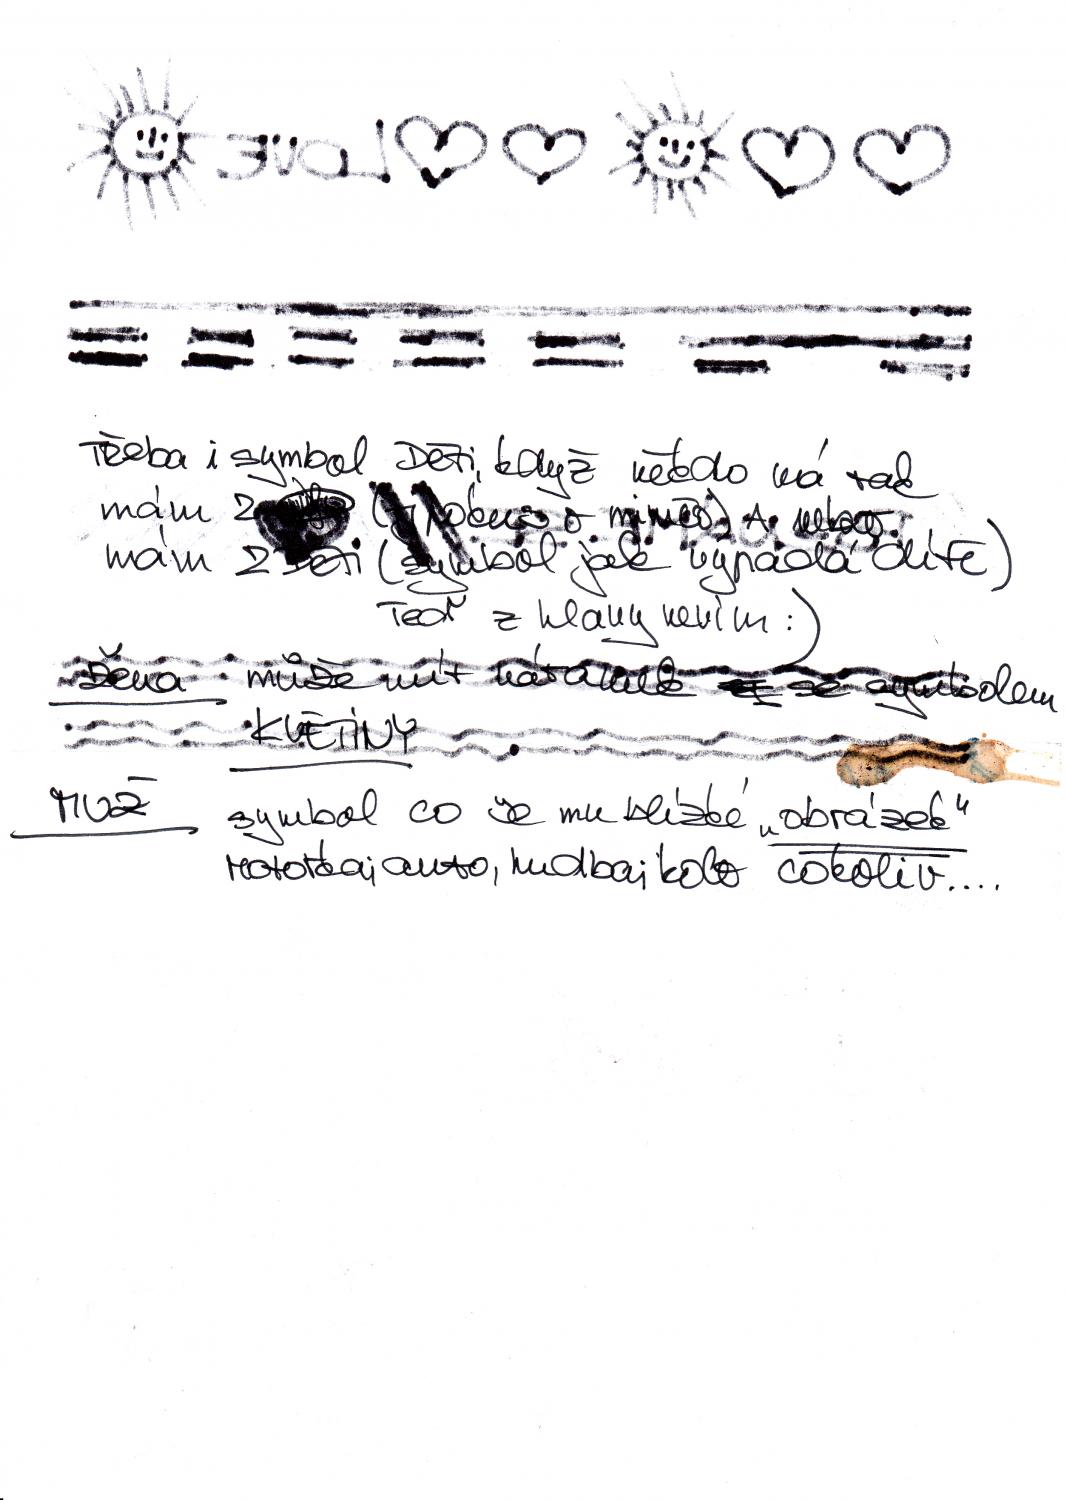 LOVE
Třeba i symbol Děti, když někdo má rád
mám 2
mám 2 Děti (symbol jak vypadá dítě)
Teď z hlavy nevím :)
Žena může mít náramek se symbolem
KVĚTINY
MUŽ symbol co je mu blízké „obrázek"
motorka, auto, hudba, kolo cokoliv....